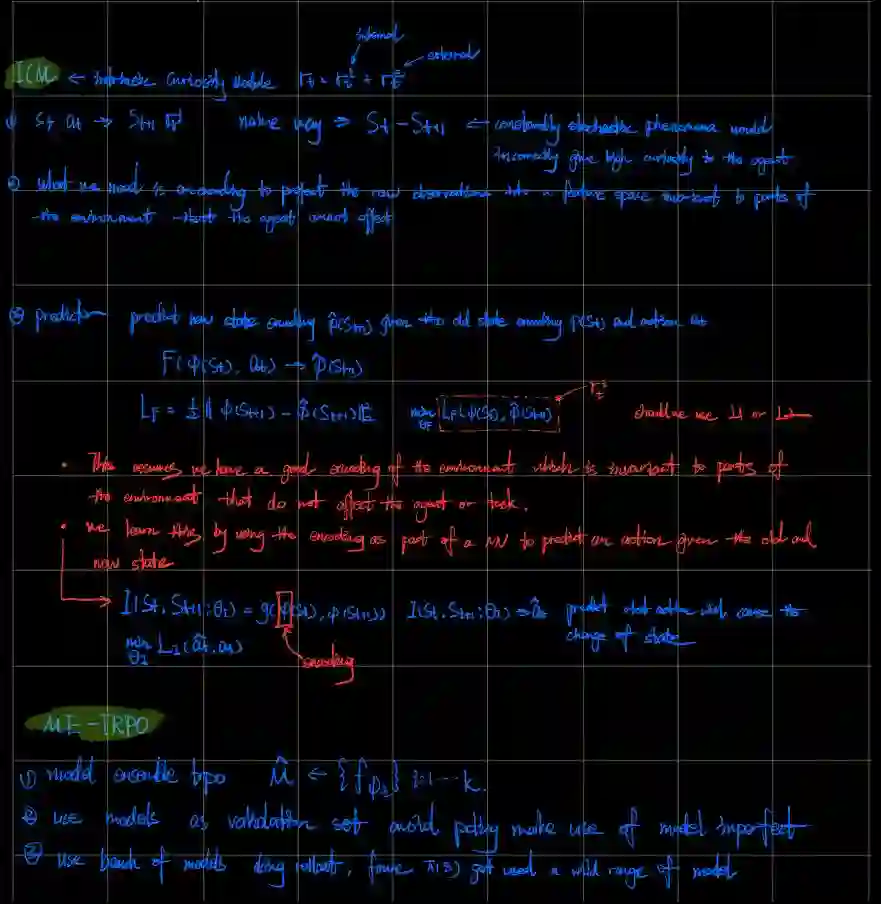 internal
external
ICM ← intrinsic curiosity module r_t = r_t^i + r_t^e
① S_t a_t → S_{t+1} naive way ⇒ S_t - S_{t+1} ⇐ constantly stochastic phenomena would
incorrectly give high curiosity to the agent
② what we need is encoding to project the raw observations into a feature space invariant to parts of
the environment that the agent cannot affect
③ predictor predict new state encoding φ̂(S_{t+1}) given the old state encoding φ(S_t) and action a_t
F(φ(S_t), a_t) → φ̂(S_{t+1})
r_t^i
L_F = ½‖φ(S_{t+1}) - φ̂(S_{t+1})‖² min θ_F L_F(φ(S_t), φ̂(S_{t+1})) should we use L1 or L2
• This assumes we have a good encoding of the environment which is invariant to parts of
the environment that do not affect the agent or task.
• we learn this by using the encoding as part of a NN to predict an action given the old and
new state
I(S_t, S_{t+1}; θ_I) = g(φ(S_t), φ(S_{t+1})) I(S_t, S_{t+1}; θ_I) → â_t predict what action will cause the
change of state
min θ_I L_I(â_t, a_t)
encoding
ME-TRPO
① model ensemble trpo M̂ ← {f_{φ_i}} i=1...k.
② use models as validation set avoid policy make use of model imperfect
③ use bunch of models doing rollout, force π(s) get used a wild range of model